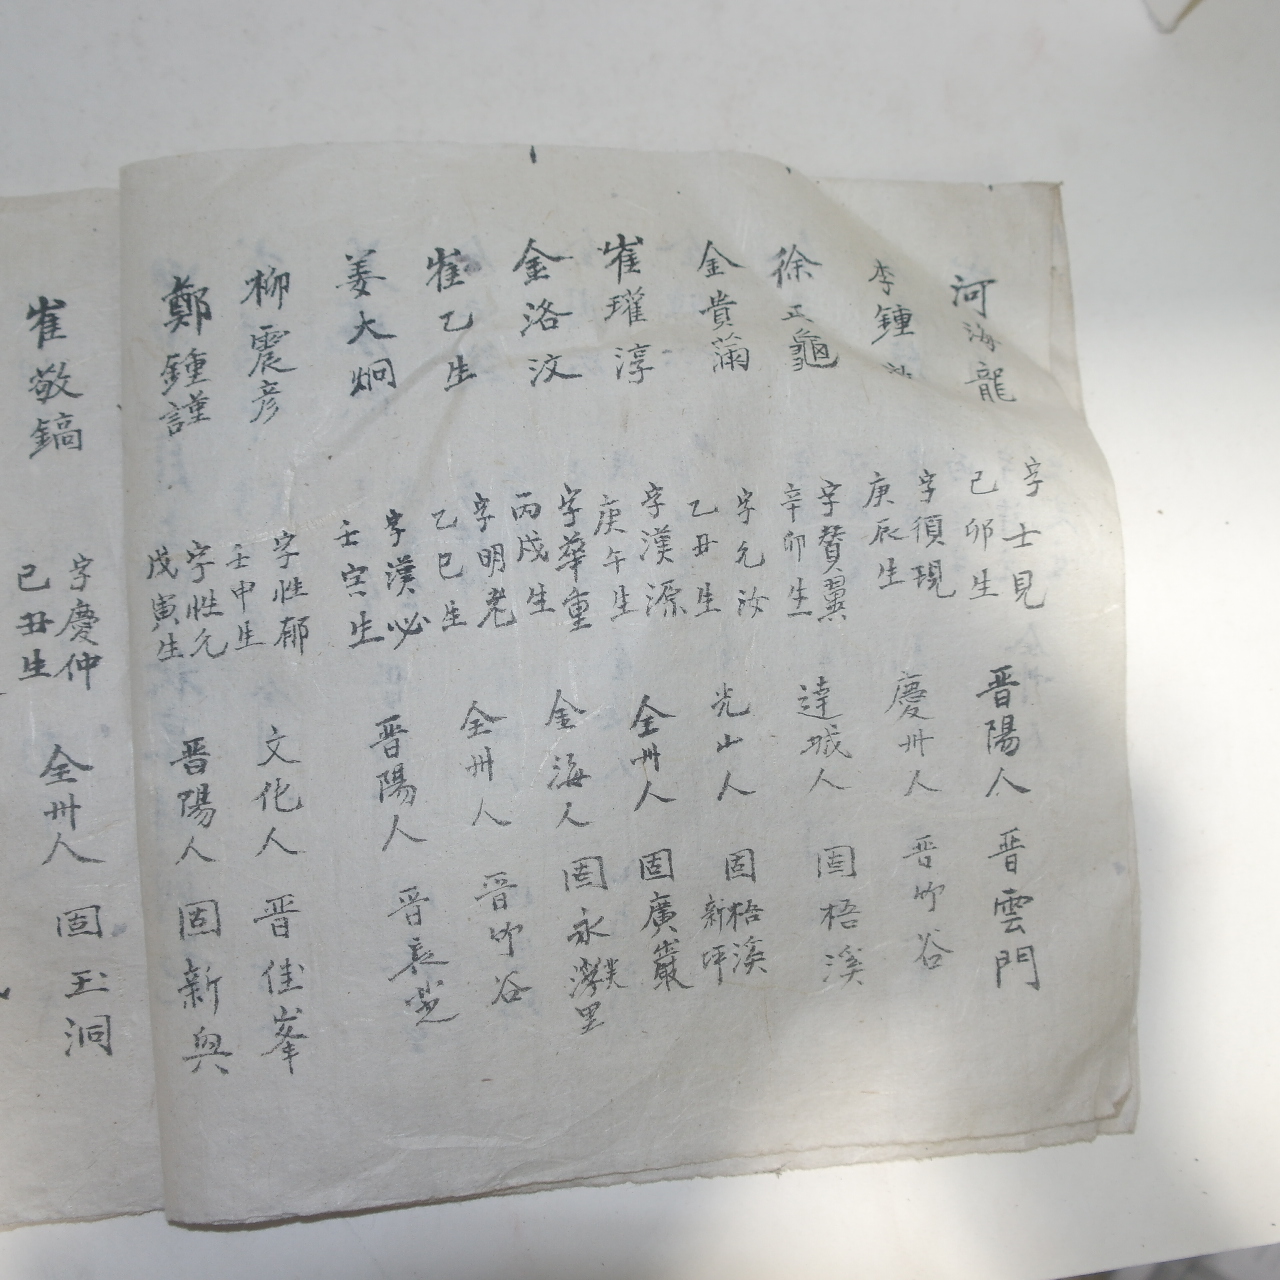 河海龍 字士見 己卯生 晋陽人 晋雲門
李鍾 字須現 庚辰生 慶州人 晋竹谷
徐正龜 字贊翼 辛卯生 達城人 固梧溪
金貴蒲 字允汝 乙丑生 光山人 固梧溪 新坪
崔瓘淳 字漢源 庚午生 全州人 固廣巖
金洛汶 字華重 丙戌生 金海人 固永 里
崔乙生 字明老 乙巳生 全州人 晋竹谷
姜大炯 字漢必 壬字生 晋陽人 晋
柳震彦 字性郁 壬申生 文化人 晋佳峯
鄭鍾謹 字性允 戊寅生 晋陽人 固新興
崔敬鎬 字慶仲 己丑生 全州人 固玉洞